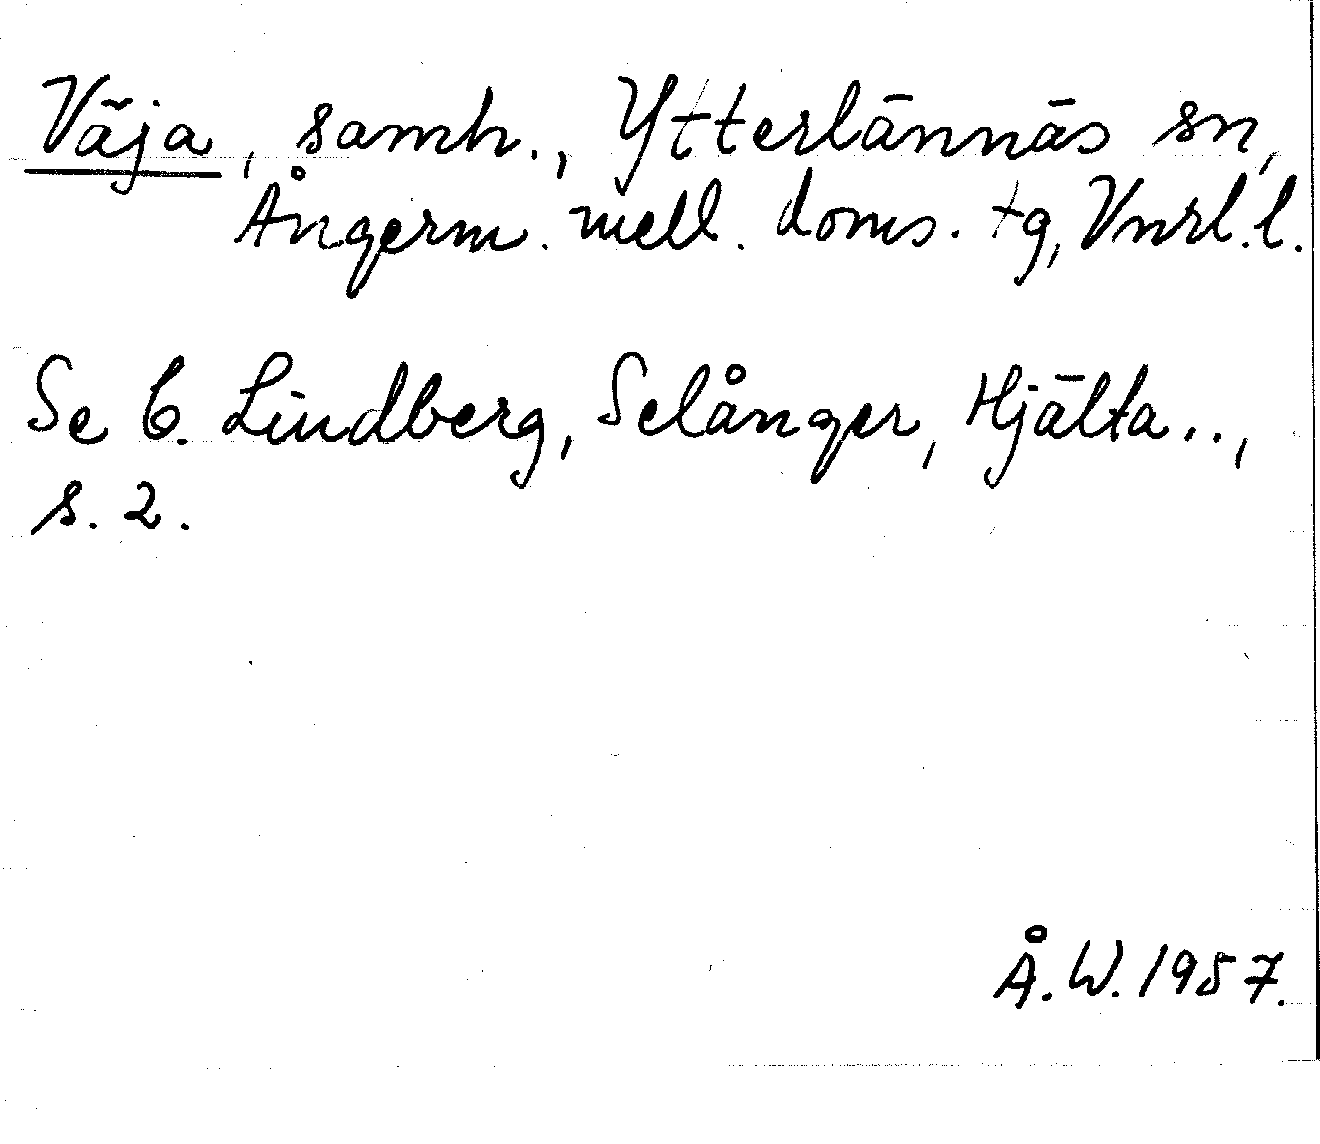 Väja, samh., Ytterlännäs sn,
Ångerm. mell. doms. tg, Vnrl.l.
Se C. Lindberg, Selånger, Hjälta..,
s. 2.
Å.W. 1957.